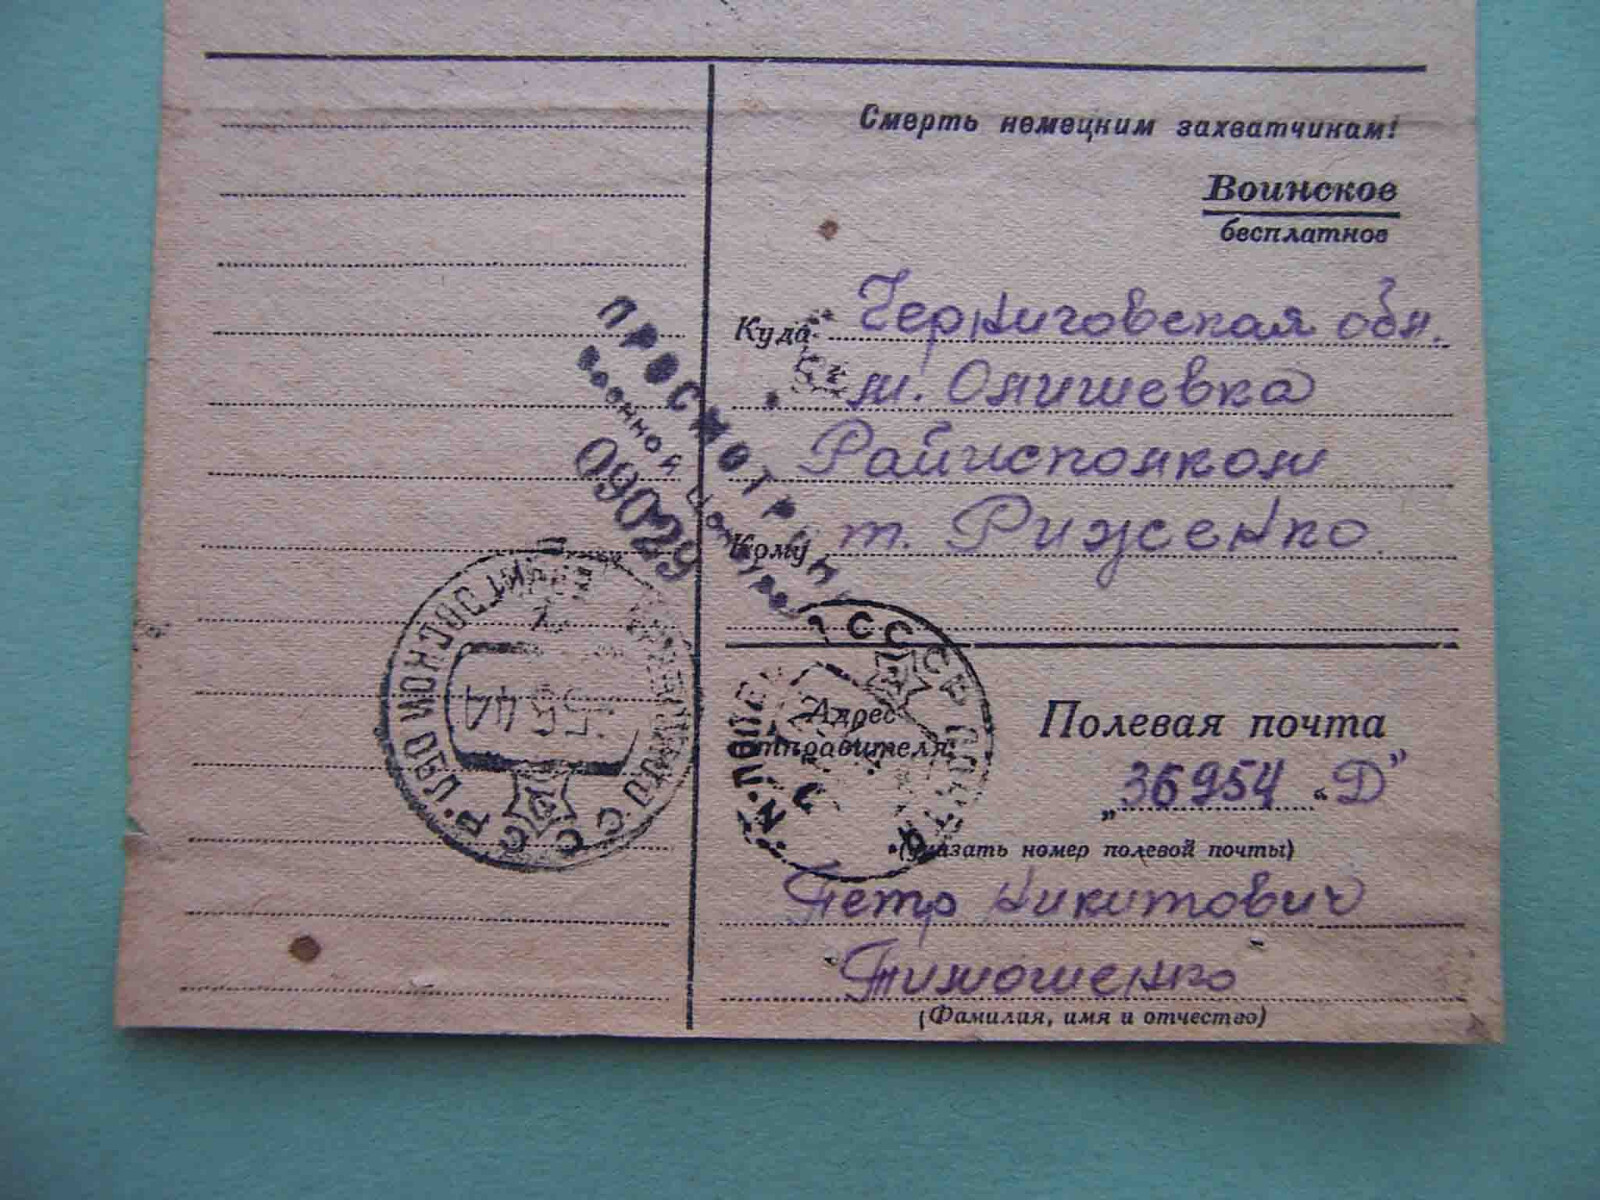 Смерть немецким захватчикам!
Воинское
бесплатное
Куда Черниговская обл.
м. Олишевка
Райисполком
Кому т. Риженко
ПРОСМОТРЕНО
Военной Цензурой
09029
СССР
5 5 44
СССР
Адрес
отправителя
Полевая почта
„36954 „Д"
(указать номер полевой почты)
Петр Никитович
Тимошенко
(Фамилия, имя и отчество)